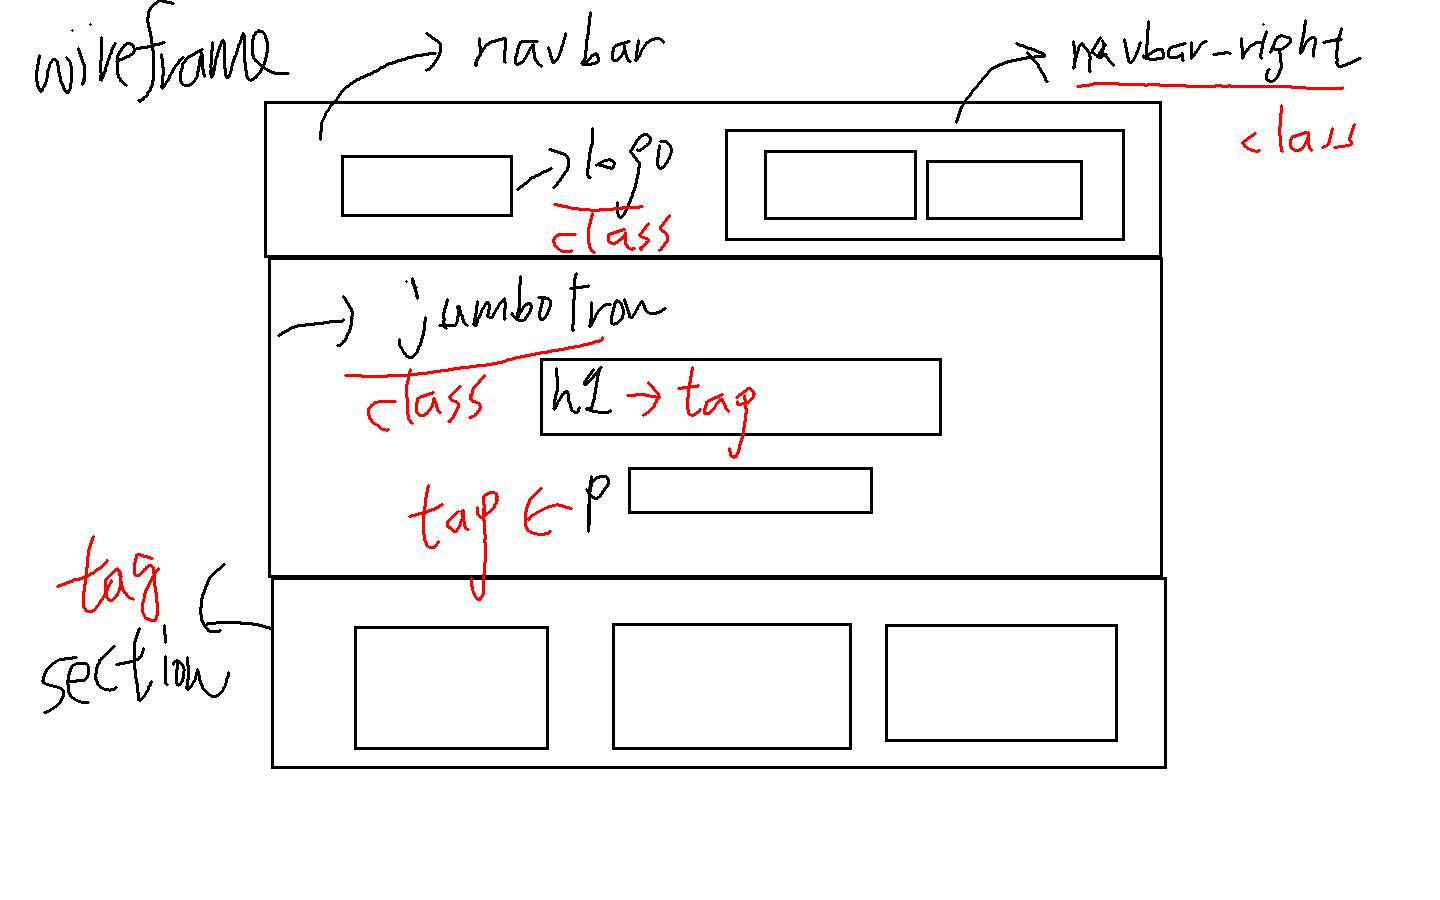 wireframe
navbar
navbar-right
class
logo
class
jumbotron
class
h1 → tag
tag ← p
tag
section